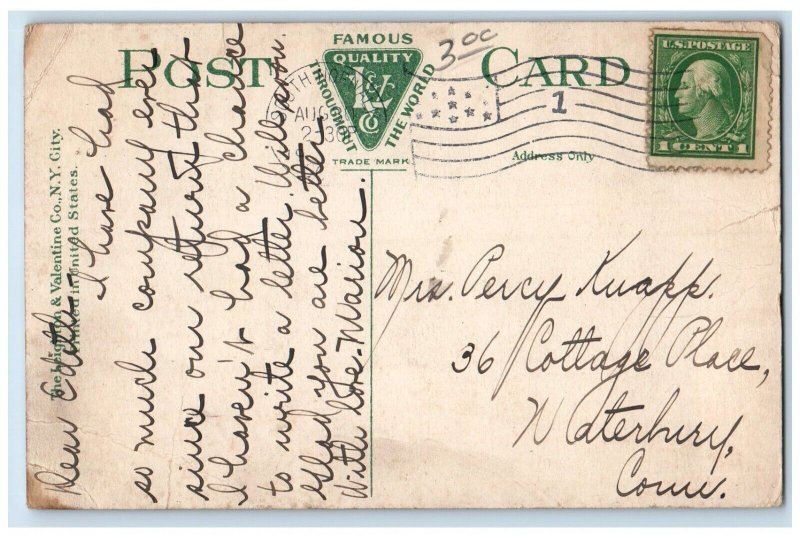 FAMOUS
POST CARD
QUALITY
L & V
Co
THROUGHOUT THE WORLD
TRADE MARK
3.00
AUG
230P
1
U.S. POSTAGE
1 CENT 1
Address Only
The Leighton & Valentine Co., N.Y. City.
Printed in United States.
Dear
I have had
so much company ever
since our return that
I haven't had a chance
to write a letter. Will soon.
Glad you are better.
With love - Marion.
Mrs. Percy Knapp.
36 Cottage Place,
Waterbury,
Conn.